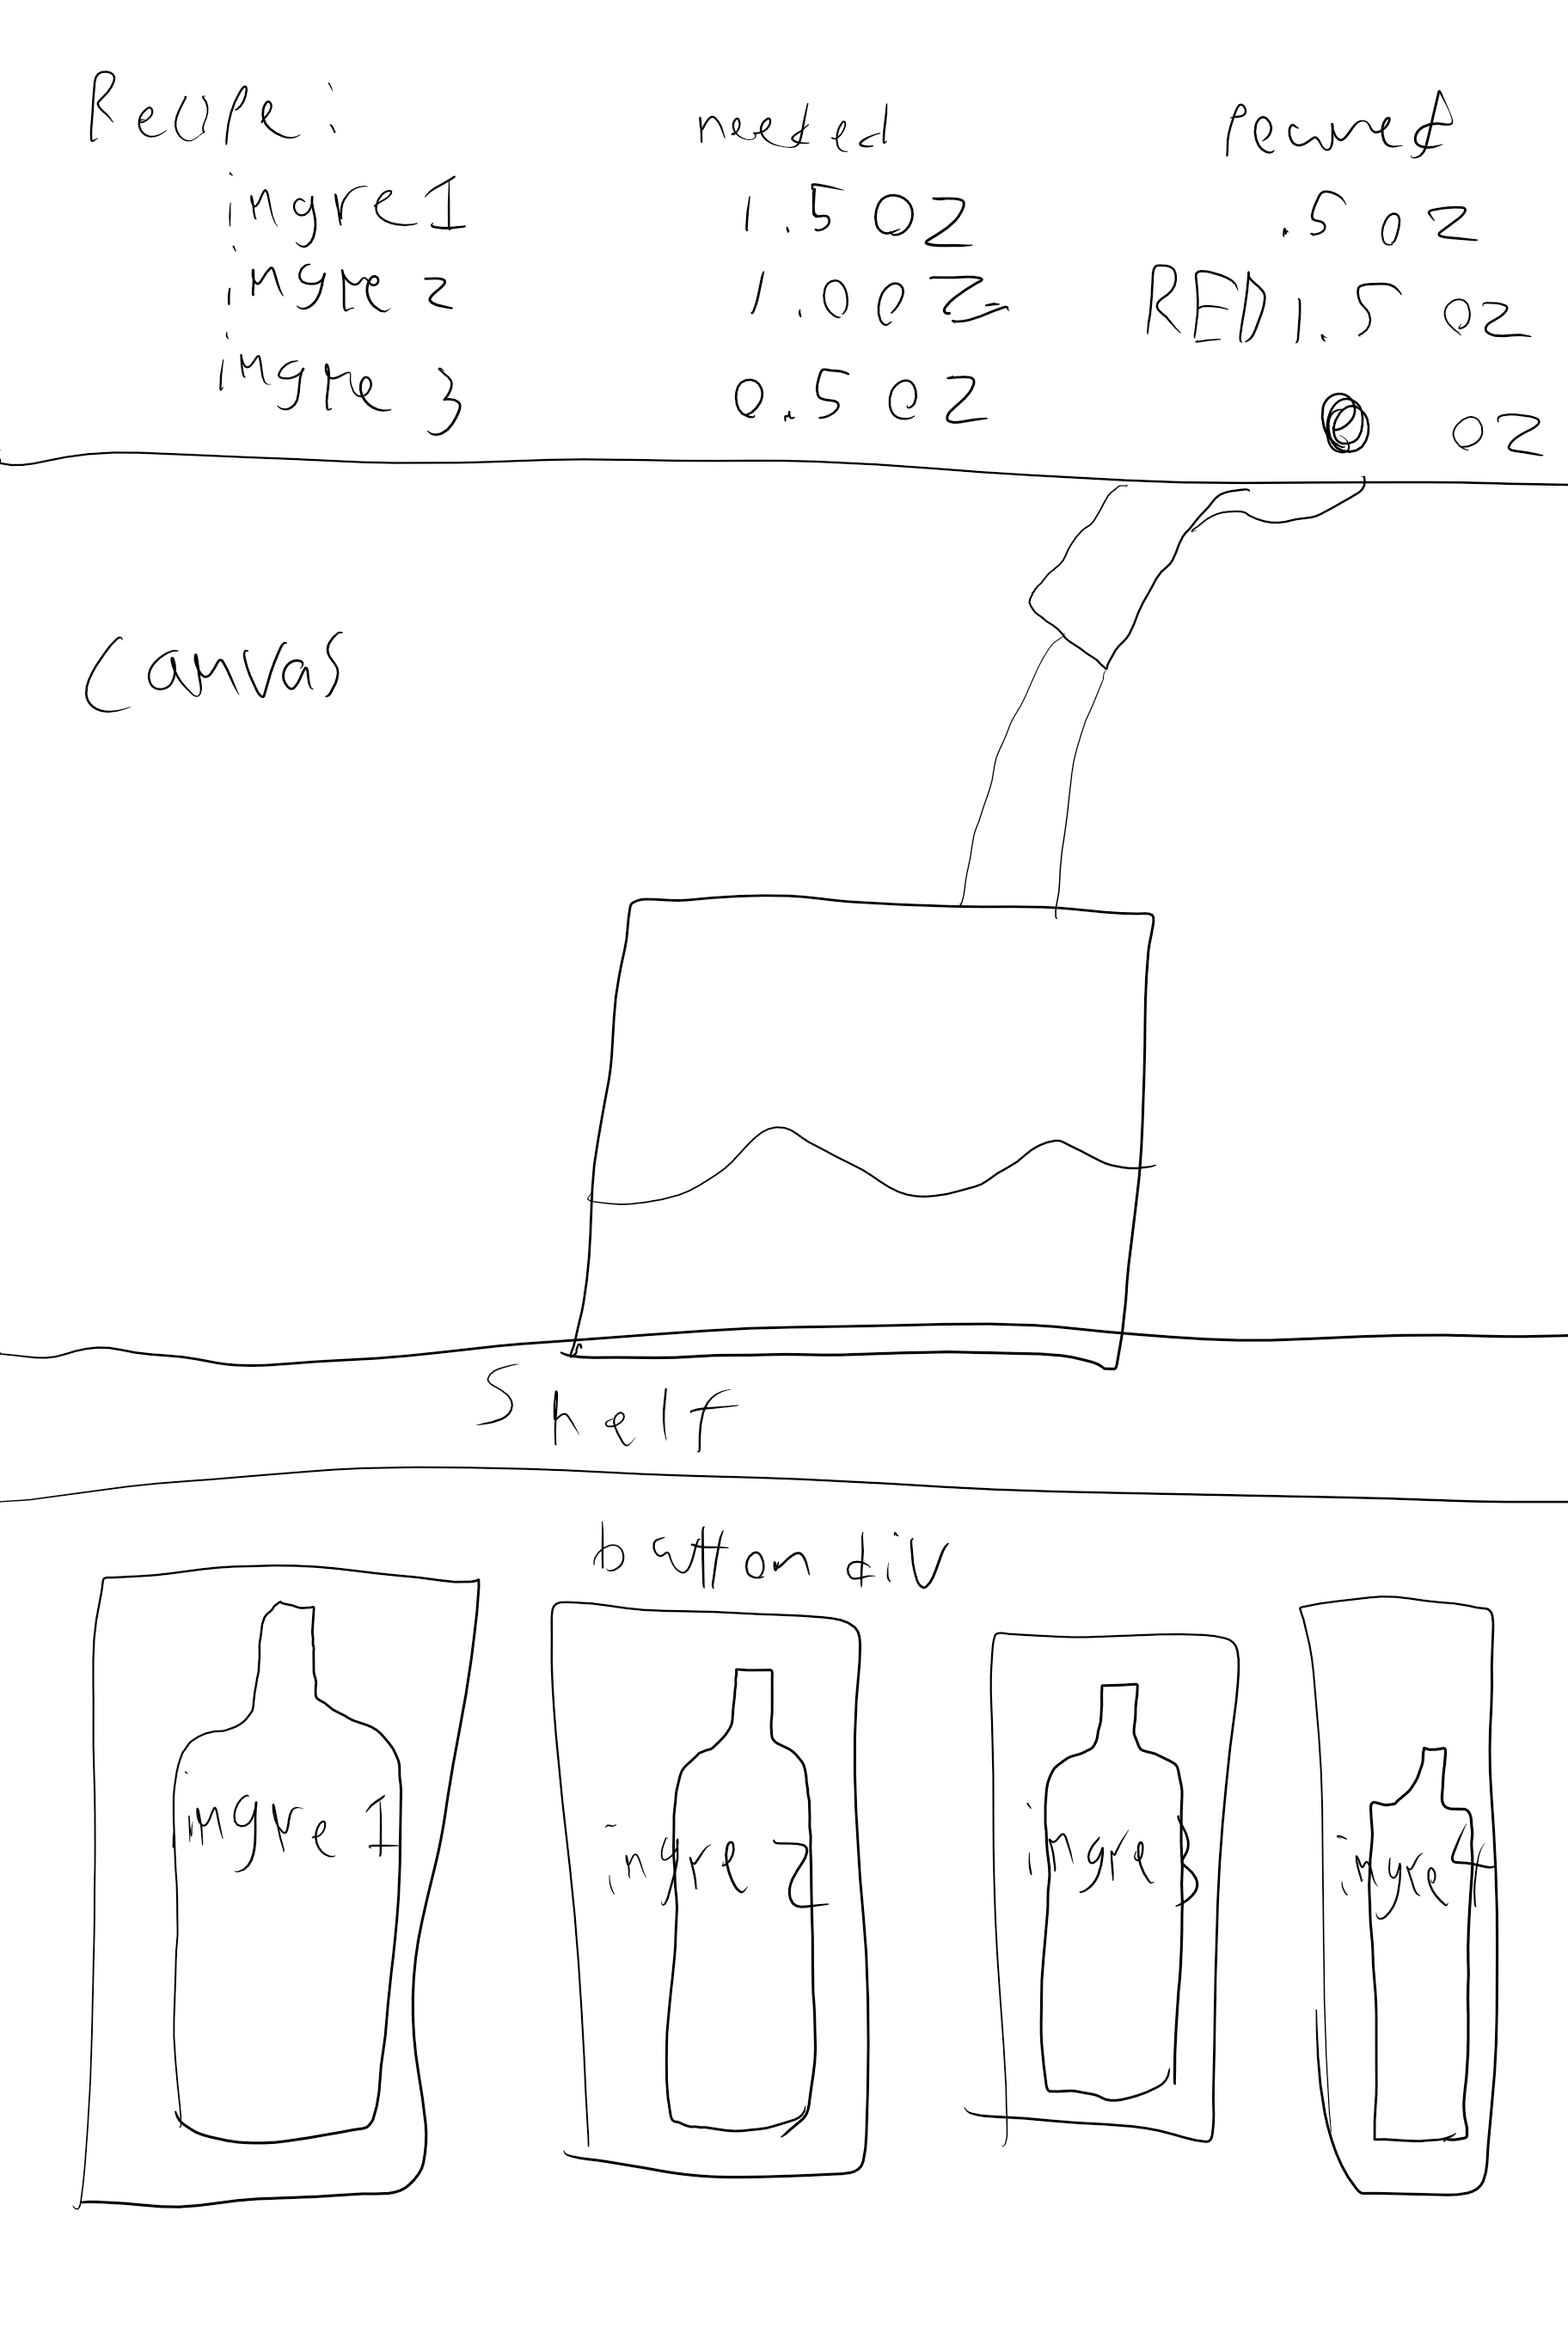 Recipe: needed poured
ingre 1 1.5 oz .5 oz
ingre 2 1.0 oz RED 1.5 oz
ingre 3 0.5 oz oz
Canvas
Shelf
button div
ingre 1 ingre 2 ingre 3 ingre 4